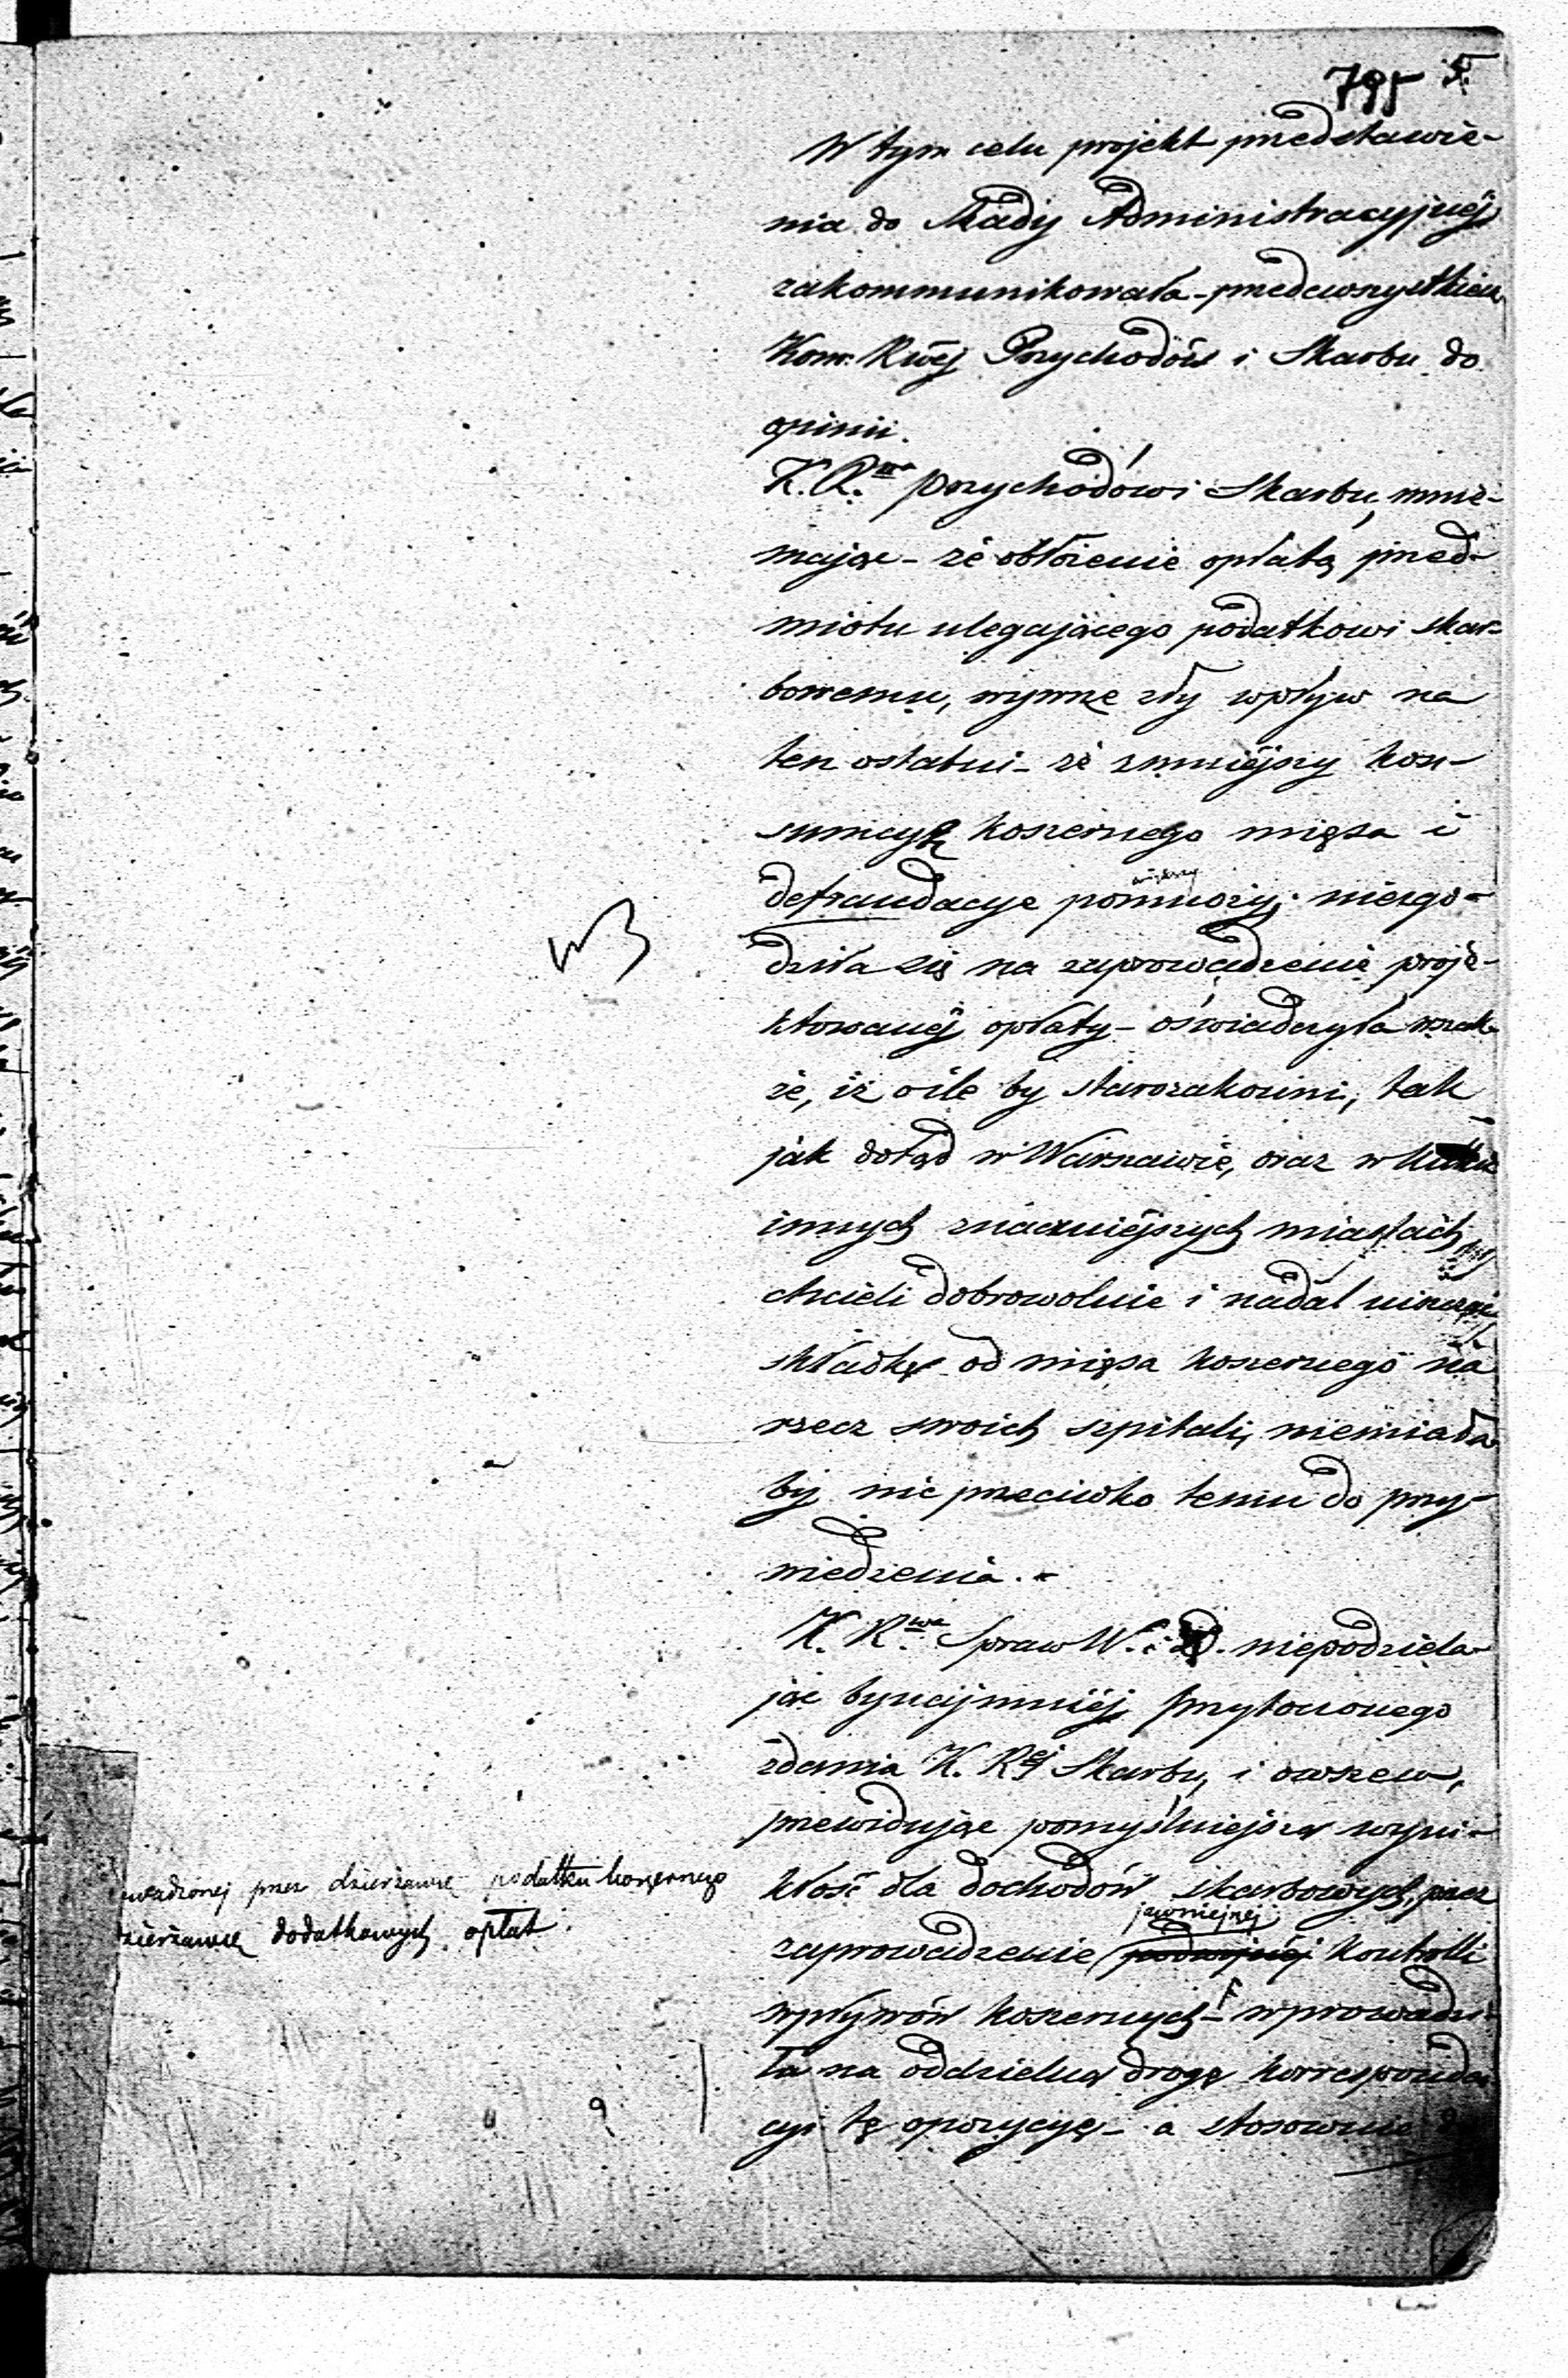 795 5.
W tym celu projekt przedstawie-
nia do Rady Administracyjnéj
zakommunikowała - przedewszystkiem
Kom: Rwéj Przychodów i Skarbu do
opinii.
K. R.wa Przychodów i Skarbu, mnie-
mając - że obłożenie opłatą przed-
miotu ulegającego podatkowi skar-
bowemu, wywrze zły wpływ na
ten ostatni - że zmniéjszy kon-
sumcyę koszernego mięsa i
większy
defraudacye pomnoży; niezgo-
dziła się na zaprowadzenie proje-
ktowanéj opłaty - oświadczyła wszak-
że, iż o ile by starozakonni, tak
jak dotąd w Warszawie, oraz w
innych znaczniejszych miastach
chcieli dobrowolnie i nadal uiszczać
składkę od mięsa koszernego na
rzecz swoich szpitali, niemiała
by nic przeciwko temu do przy-
wiedzenia. -
K. R.wa Spraw W. i D. niepodziela-
jąc bynajmniéj przytoczonego
zdania K. Réj Skarbu, i owszem,
przewidując pomyślniejszą wyni-
kłość dla dochodów skarbowych, przez
jawniejszéj
zaprowadzenie podwójnéj kontrolli
wpływów koszernych - F wprowadzi-
ła na oddzielną drogę korresponden-
cyi tę opozycyę - a stosownie do
wadzonej przez dzierżawcę podatku koszernego
dzierżawcę dodatkowych opłat.